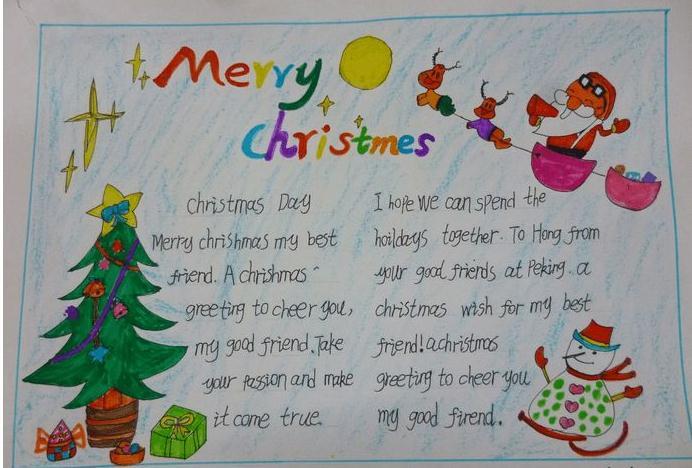 Merry
christmes
christmas Day
Merry chrishmas my best
friend. A chrishmas
greeting to cheer you,
my good friend. Take
your passion and make
it come true.
I hope we can spend the
hoildays together. To Hong from
your good friends at Peking. a
christmas wish for my best
friend! a christmas
greeting to cheer you
my good firend.